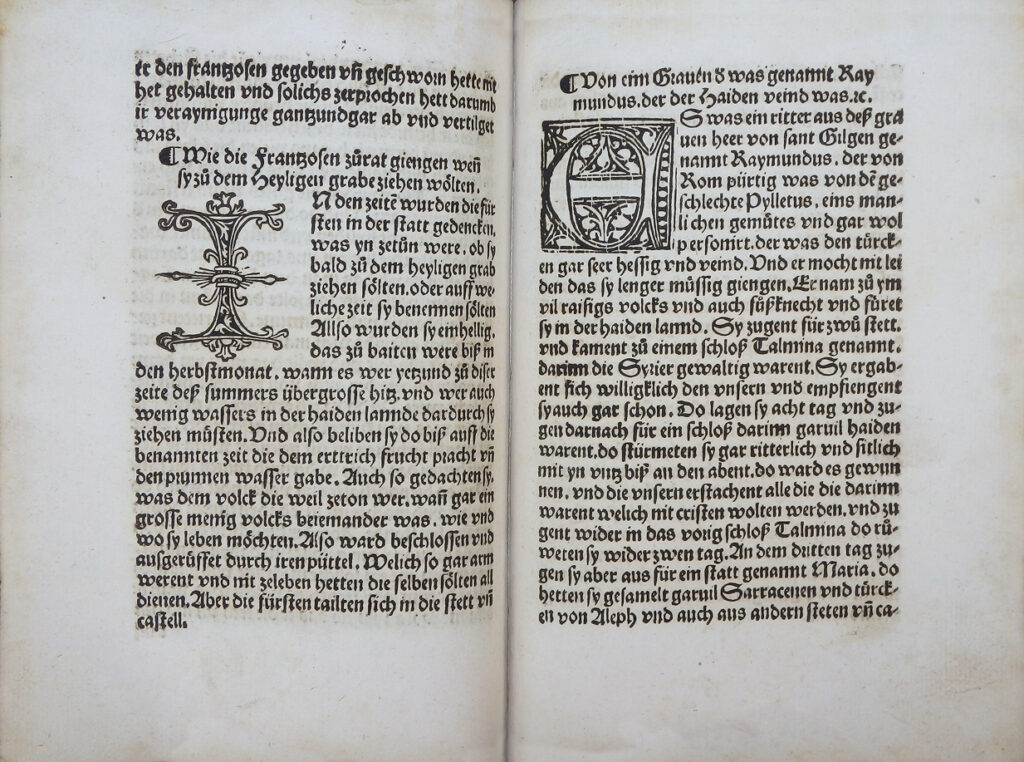 er den frantzosen gegeben vn̄ geschworn hette nit
het gehalten vnd solichs zerprochen hett darumb
ir veraynigunge gantzundgar ab vnd vertilget
was.
¶ Wie die Frantzosen zůrat giengen wen̄
sy zů dem Heyligen grabe ziehen wölten.
IN den zeitē wurden die für
sten in der statt gedencken,
was yn zetůn were. ob sy
bald zů dem heyligen grab
ziehen sölten. oder auff we
liche zeit sy benennen sölten
Allso wurden sy einhellig,
das zů baiten were biß in
den herbstmonat. wann es wer yetzund zů diser
zeite deß summers übergrosse hitz. vnd wer auch
wenig wassers in der haiden lannde dardurch sy
ziehen můsten. Vnd also beliben sy do biß auff die
benannten zeit die dem erttrich frucht pracht vn̄
den prunnen wasser gabe. Auch so gedachten sy,
was dem volck die weil zeton wer. wan̄ gar ein
grosse menig volcks beieinander was. wie vnd
wo sy leben möchten. Also ward beschlossen vnd
ausgerüffet durch iren püttel. Welich so gar arm
werent vnd nit zeleben hetten die selben sölten all
dienen. Aber die fürsten tailten sich in die stett vn̄
castell.
¶ Von eim Grauen d̕ was genannt Ray
mundus. der der Haiden veind was. ⁊c.
ES was ein ritter aus deß gra
uen heer von sant Gilgen ge-
nannt Raymundus. der von
Rom pürtig was von dē ge-
schlechte Pylletus. eins man-
lichen gemůtes vnd gar wol
personirt. der was den türck-
en gar seer hessig vnd veind. Vnd er mocht mit lei
den das sy lenger müssig giengen. Er nam zů ym
vil raisigs volcks vnd auch fůßknecht vnd fůret
sy in der haiden lannd. Sy zugent für zwů stett.
vnd kament zů einem schloß Talmina genannt.
darinn die Syrier gewaltig warent. Sy ergab-
ent sich willigklich den vnsern vnd empfiengent
sy auch gar schon. Do lagen sy acht tag vnd zu-
gen darnach für ein schloß darinn garuil haiden
warent. do stürmeten sy gar ritterlich vnd sitlich
mit yn vntz biß an den abent. do ward es gewun
nen. vnd die vnsern erstachent alle die die darinn
warent welich nit cristen wolten werden. vnd zu
gent wider in das vorig schloß Talmina do rů-
weten sy wider zwen tag. An dem dritten tag zu-
gen sy aber aus für ein statt genannt Maria. do
hetten sy gesamelt garuil Sarracenen vnd türck-
en von Aleph vnd auch aus andern steten vn̄ ca-